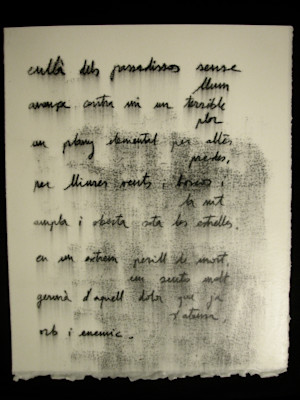 enllà dels passadissos sense
llum
avança contra mi un terrible
plor
un plany elemental per altes
prades,
per lliures vents i boscos i
la nit
ampla i oberta sota les estrelles.
en un extrem perill de mort,
un sentit molt
germà d'aquell dolor que ja
s'atansa,
orb i enemic.